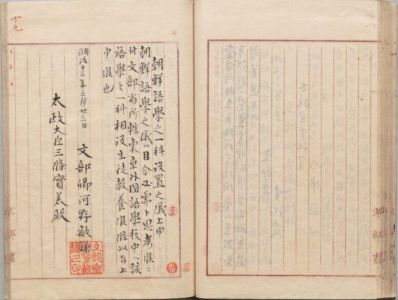 朝鮮語学之一科設置之儀上申
朝鮮語学之儀ハ目今必需ト思考候ニ
付文部省所轄東京外国語学校中ヘ該
語学之一科相設生徒教養候條此旨上
申候也
明治十三年三月廿三日
文部卿河野敏鎌
太政大臣三條實美殿